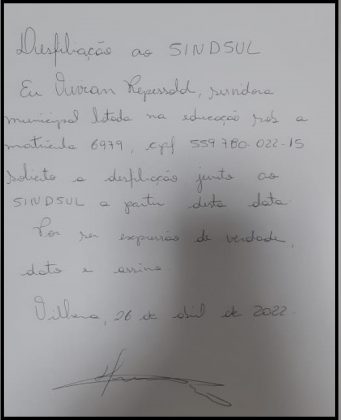 Desfiliação ao SINDSUL
Eu Vivian Repssold, servidora
municipal lotada na educação sob a
matrícula 6979, cpf 559 780.022-15
solicito a desfiliação junto ao
SINDSUL a partir desta data.
Por ser expressão de verdade,
dato e assino.
Vilhena, 26 de abril de 2022.